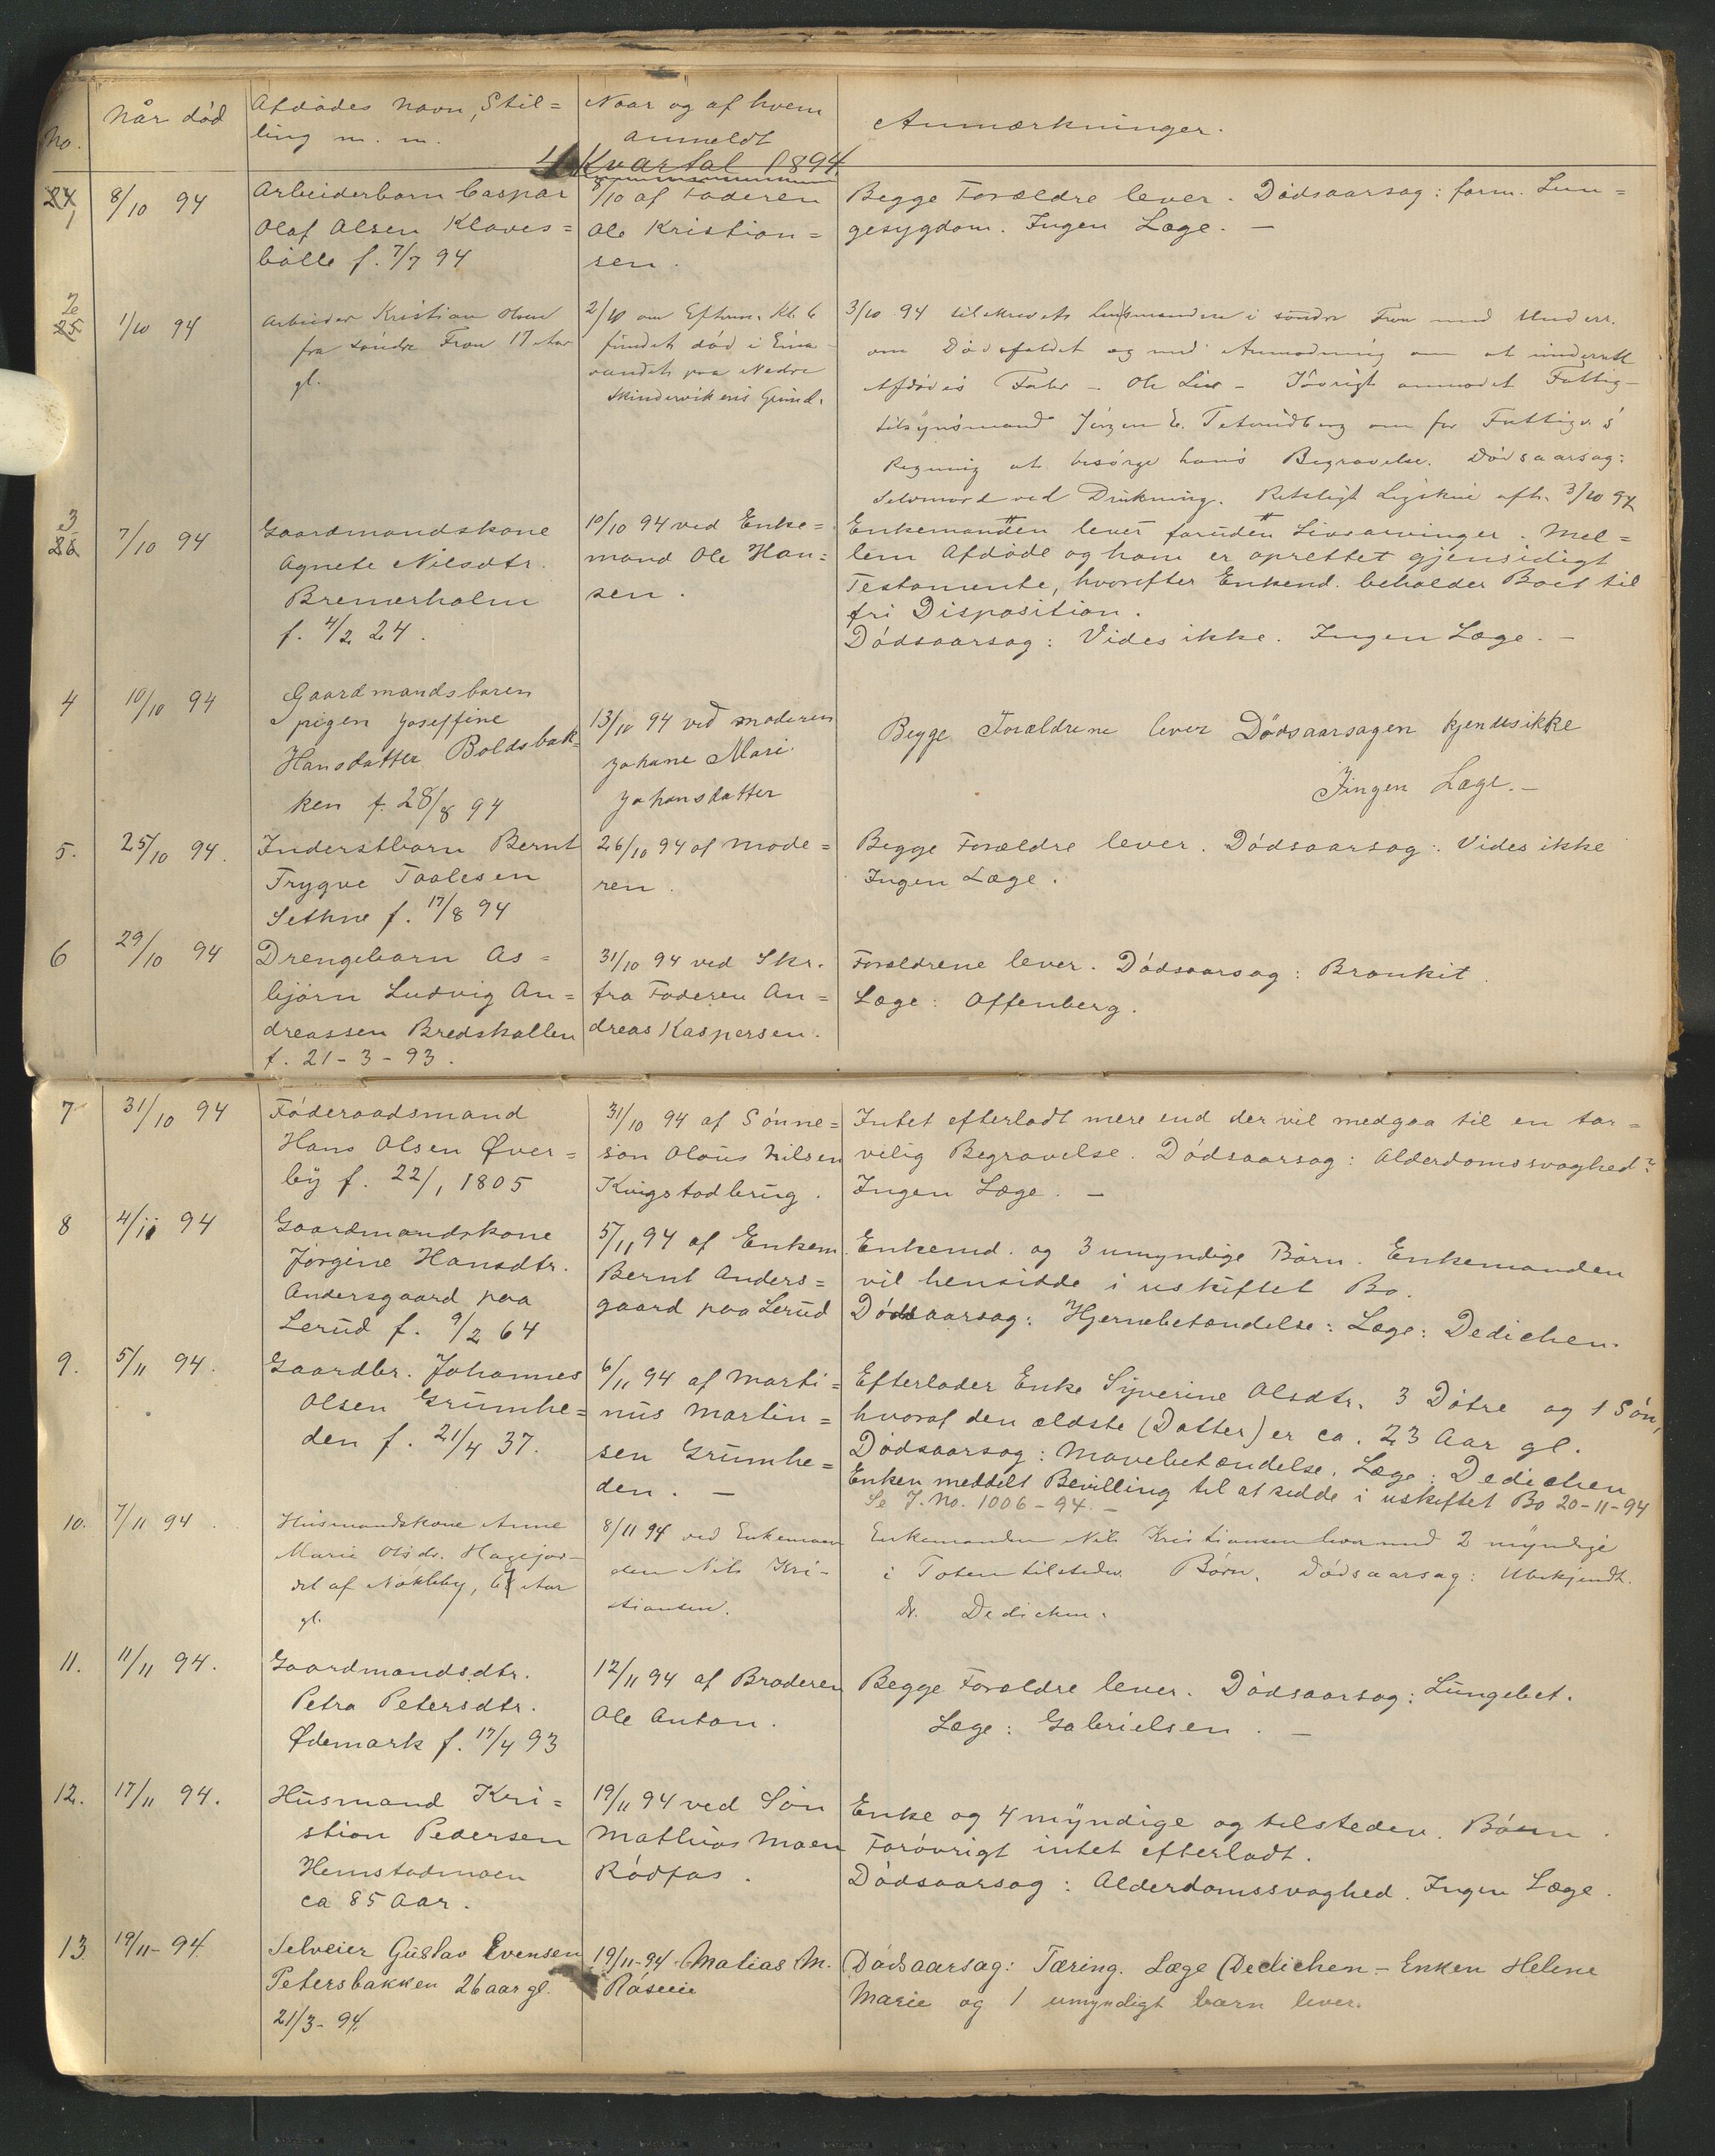 No.
Når död
Afdödes Navn, Stil=
ling m. m.
Naar og af hvem
anmeldt
Anmærkninger.
4 Kvartal 1894.
24 1
8/10 94
Arbeiderbarn Caspar
Olaf Olsen Klaves=
bölle f. 7/7 94
8/10 af Faderen
Ole Kristian=
sen.
Begge Forældre lever. Dödsaarsag: form. Lun=
gesygdom. Ingen Læge. —
2
25
1/10 94
Arbeider Kristian Olsen
fra söndre Fron 17 Aar
gl.
2/10 om Efterm. Kl. 6
fundet död i Eina
vandet paa Nedre
Skindervikens Grund.
3/10 94 tilskrevet Lensmanden i söndre Fron med Underr.
om Dödsfaldet og med Anmodning om at underrette
Afdödes Fader — Ole — Iövrigt anmodet Fattig-
tilsynsmand Jörgen E. om for Fattigv.s
Regning at besörge hans Begravelse. Dödsaarsag:
Selvmord ved Drukning. Retsligt Ligskue afh. 3/10 94
3
26
7/10 94
Gaardmandskone
Agnete Nilsdtr.
Bremerholm
f. 4/2 24.
10/10 94 ved Enke=
mand Ole Han=
sen.
Enkemanden lever foruden Livsarvinger. Mel=
lem Afdöde og ham er oprettet gjensidigt
Testamente, hvorefter Enkemd. beholder Boet til
fri Disposition.
Dödsaarsag: Vides ikke. Ingen Læge. —
4
10/10 94
Gaardmandsbaren
pigen Joseffine
Hansdatter Boldsbak=
ken f. 28/8 94
13/10 94 ved moderen
Johane Mari
Johansdatter
Begge Forældrene lever Dödsaarsagen kjendes ikke
Jingen Læge. —
5.
25/10 94.
Inderstbarn Bernt
Trygve Taalesen
Sethne f. 17/8 94
26/10 94 af Mode=
ren.
Begge Forældre lever. Dödsaarsag: Vides ikke
Ingen Læge.
6
29/10 94
Drengebarn As=
björn Ludvig An=
dreassen Bredskallen
f. 21-3-93.
31/10 94 ved Skr.
fra Faderen An=
dreas Kaspersen.
Forældrene lever. Dödsaarsag: Bronkit.
Læge: Offenberg.
7
31/10 94
Föderaadsmand
Hans Olsen Øver=
by f. 22/1 1805
31/10 94 af Sönne=
sön Olaus Nilsen
Kvigstadbrug.
Intet efterladt mere end der vil medgaa til en tar=
velig Begravelse. Dödsaarsag: Alderdomssvaghed?
Ingen Læge. —
8
4/11 94
Gaardmandskone
Jørgine Hansdtr.
Andersgaard paa
Lerud f. 9/2 64
5/11 94 af Enkem.
Bernt Anders=
gaard paa Lerud
Enkemd. og 3 umyndige Börn. Enkemanden
vil hensidde i uskiftet Bo.
Dödsaarsag: Hjernebetændelse: Læge: Dedichen.
9.
5/11 94.
Gaardbr. Johannes
Olsen Grumhe=
den f. 21/4 37.
6/11 94 af Marti=
nus Martin=
sen Grumhe=
den. —
Efterlader Enke Syverine Olsdtr. 3 Dötre og 1 Sön,
hvoraf den ældste (Datter) er ca. 23 Aar gl.
Dödsaarsag: Mavebetændelse. Læge: Dedichen
Enken meddelt Bevilling til at sidde i uskiftet Bo 20-11-94
Se J. No. 1006-94. —
10.
7/11 94.
Husmandskone Anne
Marie Olsdr. Hagejor-
det af Nökleby, Aar
gl.
8/11 94 ved Enkeman
den Nils Kri-
stiansen.
Enkemanden Nils Kristiansen lever med 2 myndige
i Toten tilstedev. Börn. Dödsaarsag: Ubekjendt.
Dr. Dedichen.
11.
11/11 94.
Gaardmandsdtr.
Petra Petersdtr.
Ødemark f. 17/4 93
12/11 94 af Broderen
Ole Anton.
Begge Forældre lever. Dödsaarsag: Lungebet.
Læge: Gabrielsen. —
12.
17/11 94.
Husmand Kri=
stian Pedersen
Hemstadmoen
ca 85 Aar.
19/11 94 ved Sön
Mathias Moen
Rödfos.
Enke og 4 myndige og tilstedev. Börn.
Forövrigt intet efterladt.
Dödsaarsag: Alderdomssvaghed. Ingen Læge.
13
19/11-94.
Selveier Gustav Evensen
Petersbakken 26 aar gl.
21/3-94.
19/11-94 Matias M.
Röseie
Dödsaarsag: Tæring. Læge Dedichen - Enken Helene
Marie og 1 umyndigt barn lever.